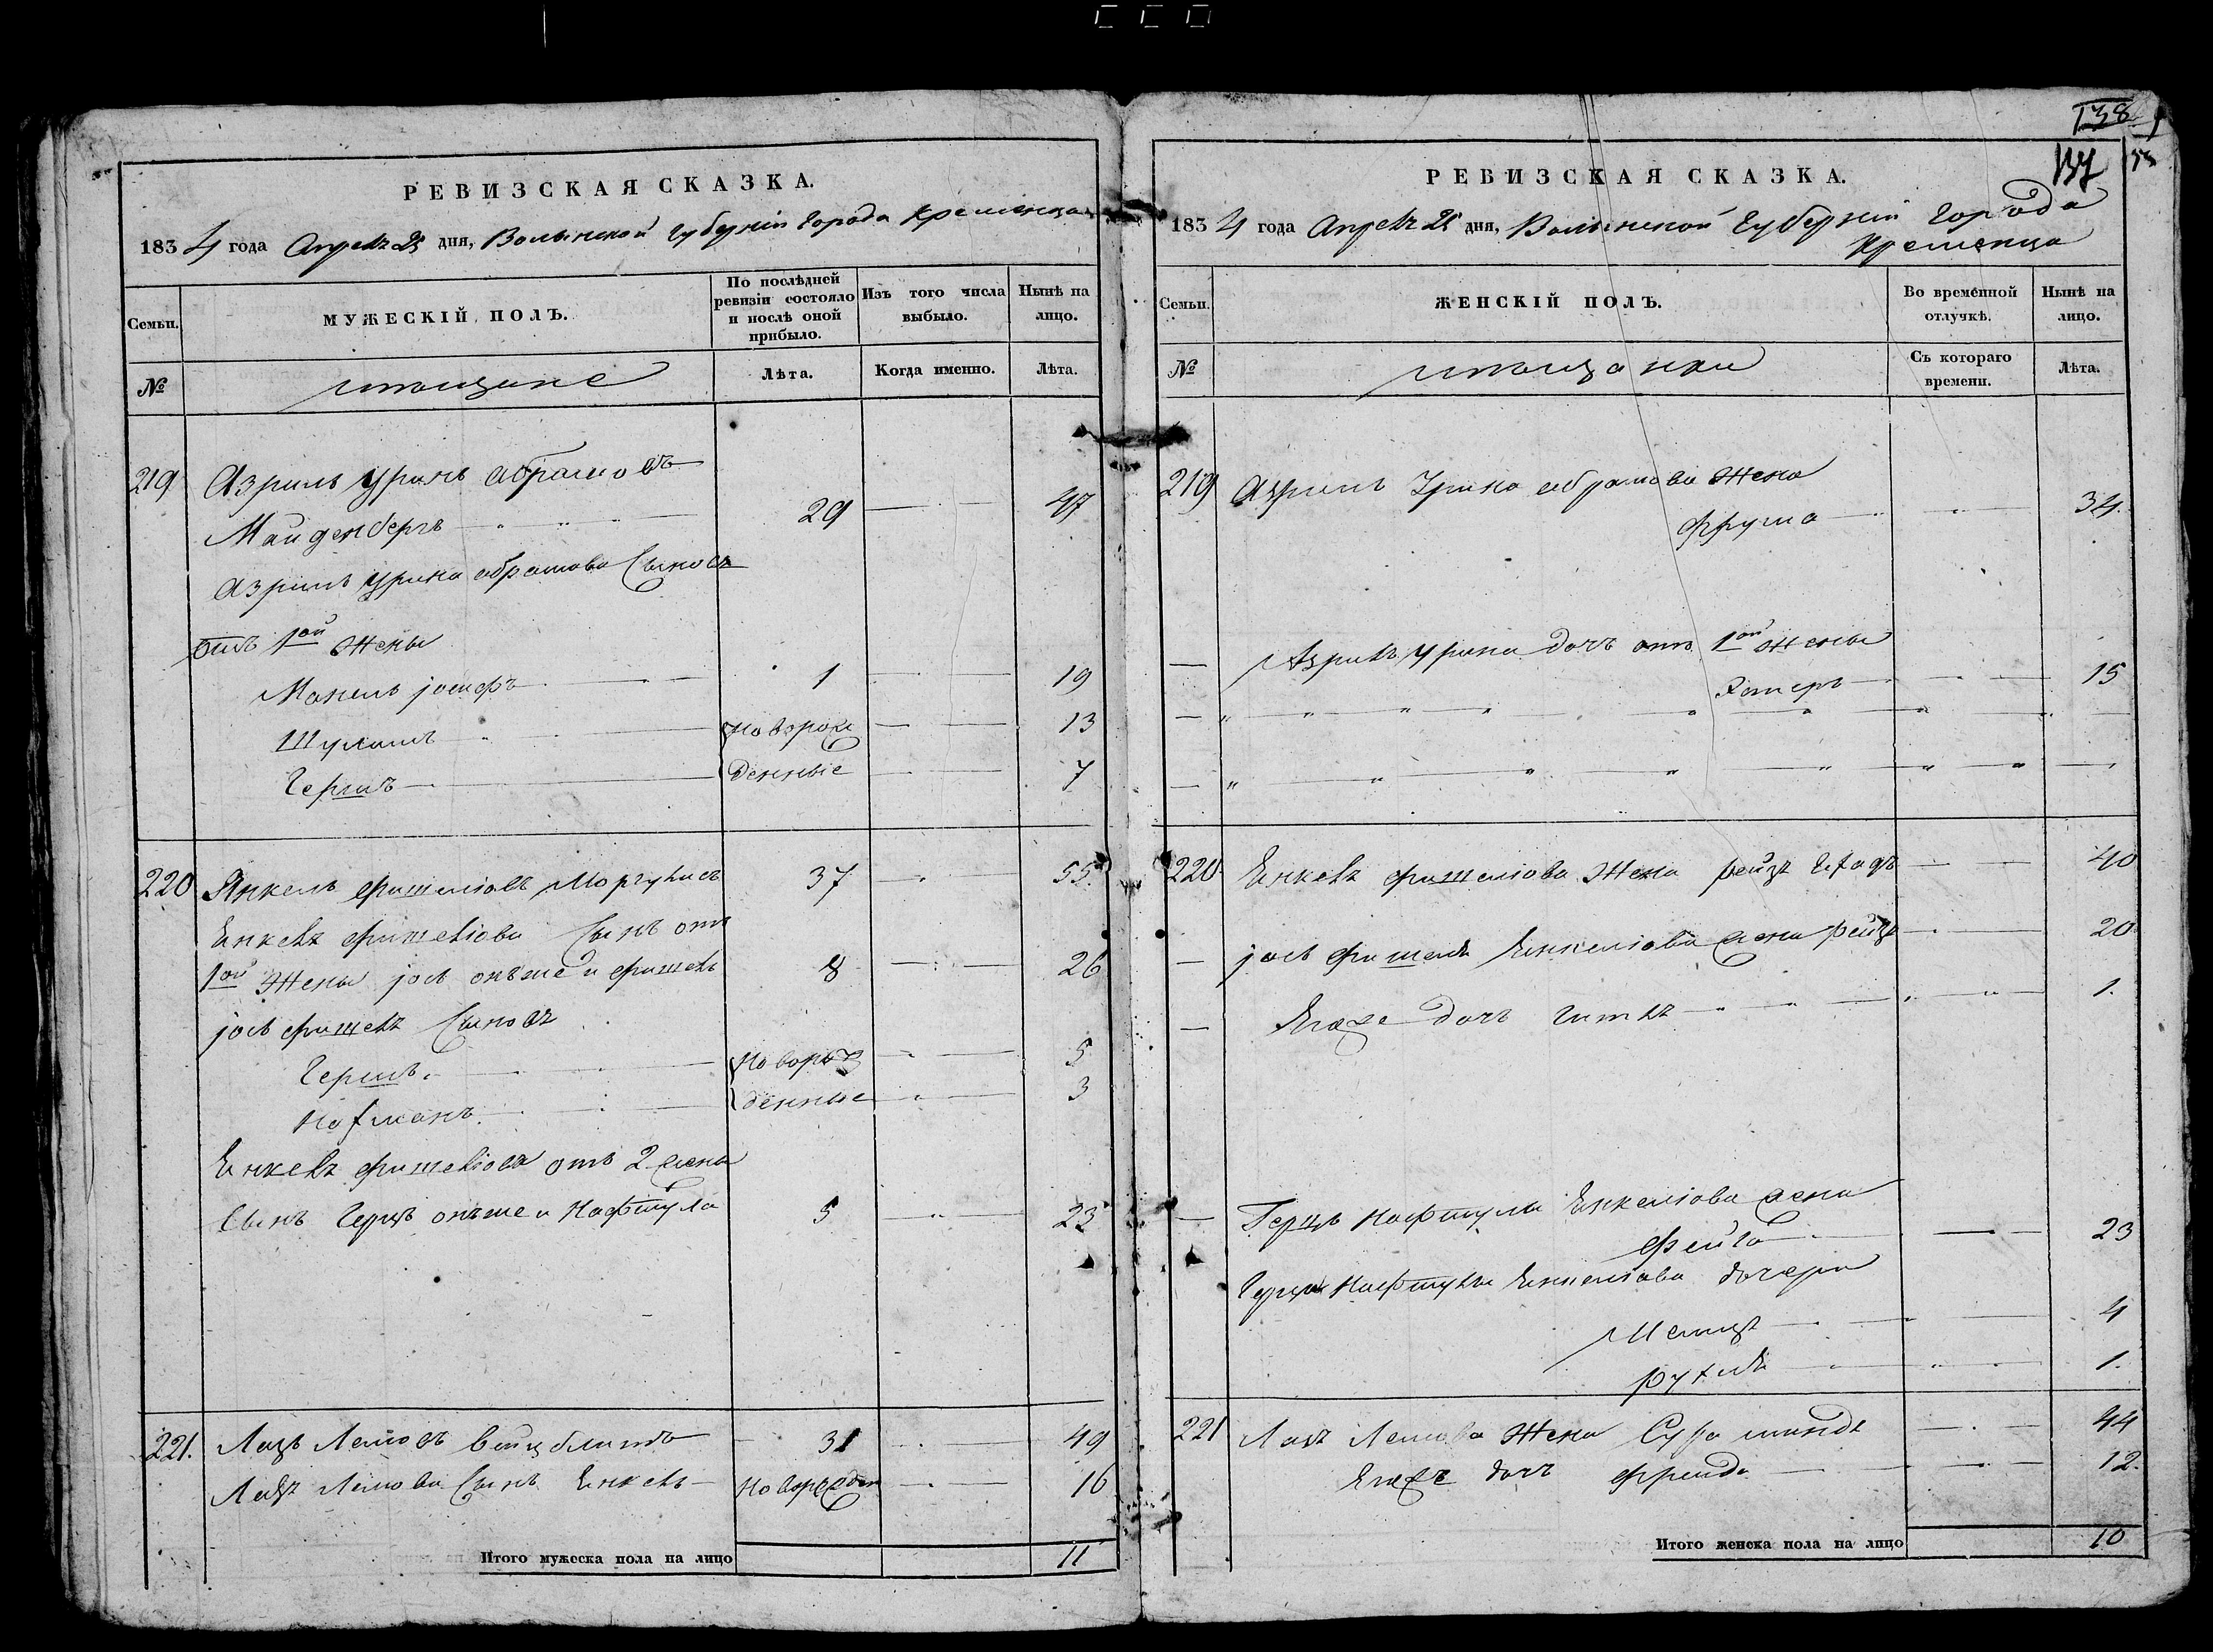 138
137
РЕВИЗСКАЯ СКАЗКА.
1834 года Апреля 25 дня, Волынской губернiи города Кременца
Семьи.
МУЖЕСКІЙ ПОЛЪ.
По послѣдней ревизіи состояло и послѣ оной прибыло.
Изъ того числа выбыло.
Нынѣ на лицо.
№
мѣщане
Лѣта.
Когда именно.
Лѣта.
219 Азриль Уринъ Абрамовъ
Майденбергъ 29 47
Азриль Урина Абрамова Сыновья
отъ 1ой Жены
Манель Іосифъ 1 19
Шулимъ новорож 13
Гершъ денные 7
220 Янкель Фишелiовъ Моргулисъ 37 55.
Енкеля Фишелiова Сынъ отъ
1ой Жены Іось онъже и Фишель 8 26
Іось Фишеля Сыновья
Гершъ. новорож 5
Нахманъ денные 3
Енкеля Фишелiова отъ 2 жены
Сынъ Герцъ онъже и Нафтула 5 23
221. Лазъ Лейбовъ Вайцблитъ 31 49
Лазя Сынъ Енкель новорожден 16
Итого мужеска пола на лицо 11
РЕВИЗСКАЯ СКАЗКА.
1834 года Апреля 25 дня, Волынской Губернiи Города
Кременца
Семьи.
ЖЕНСКІЙ ПОЛЪ.
Во временной отлучкѣ.
Нынѣ на лицо.
№
мѣщанки
Съ котораго времени.
Лѣта.
219 Азриль Урина Абрамова Жена
Фрума 34.
Азриль Урина дочь отъ 1ой Жены
Эстеръ 15
220 Енкеля Фишелiова Жена Рейзя 40
Іось Фишеля Енкелiова жена Рейзя 20
Егоже дочь Гитля 1.
Герцъ Нафтулы Енкелiова жена
Фейга 23
Герца Нафтулы Енкелiова дочери
4
Рухля 1.
221 Лазя Жена Сура Миндя 44
Егоже дочь Фрейда 12.
Итого женска пола на лицо 10